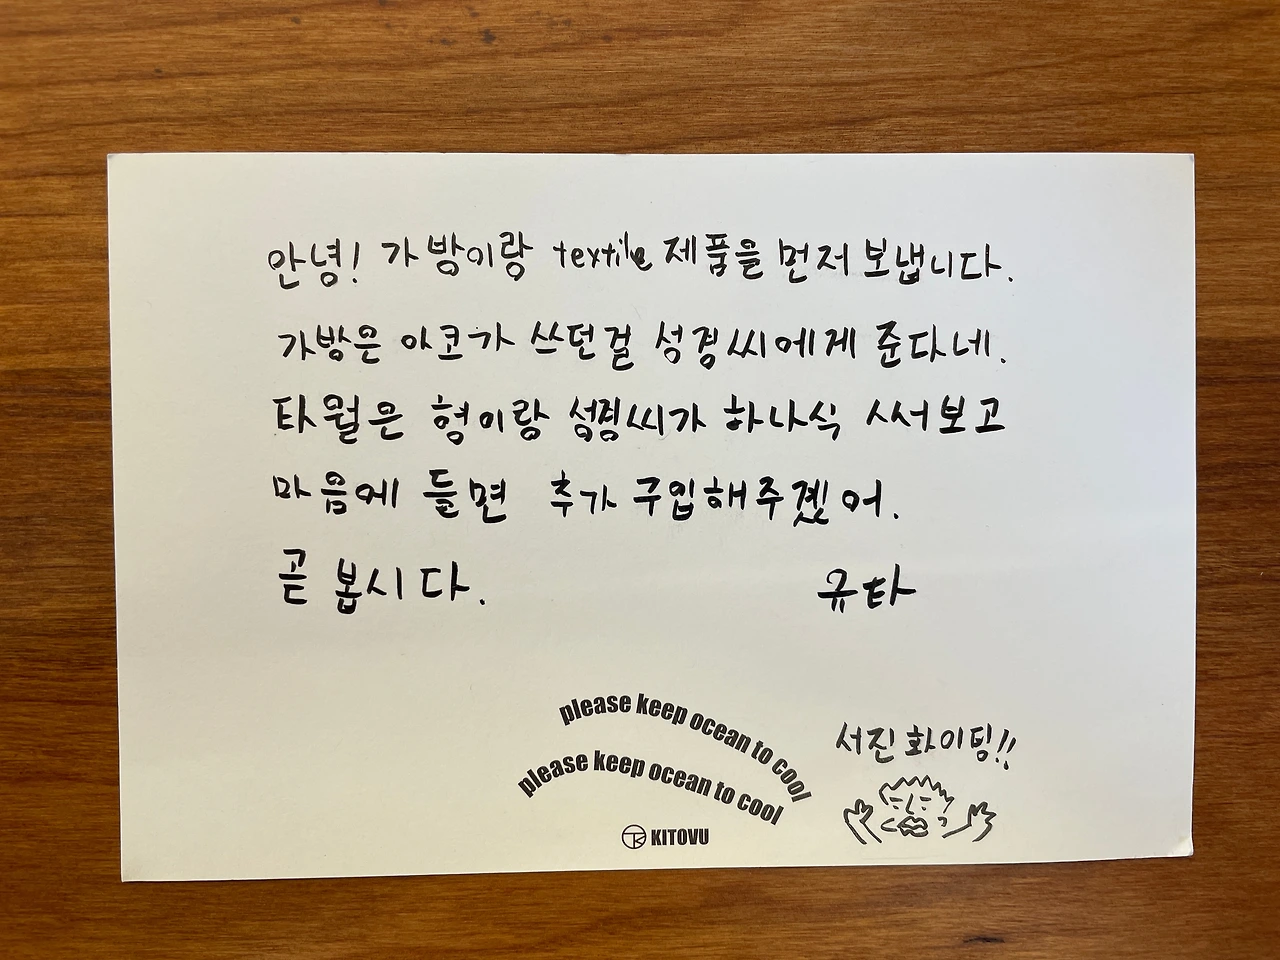 안녕! 가방이랑 textile 제품을 먼저 보냅니다.
가방은 아코가 쓰던걸 성경씨에게 준다네.
타월은 형이랑 성경씨가 하나식 써보고
마음에 들면 추가 구입해주겠어.
곧 봅시다.
규타
please keep ocean to cool
please keep ocean to cool
KITOVU
서진 화이팅!!